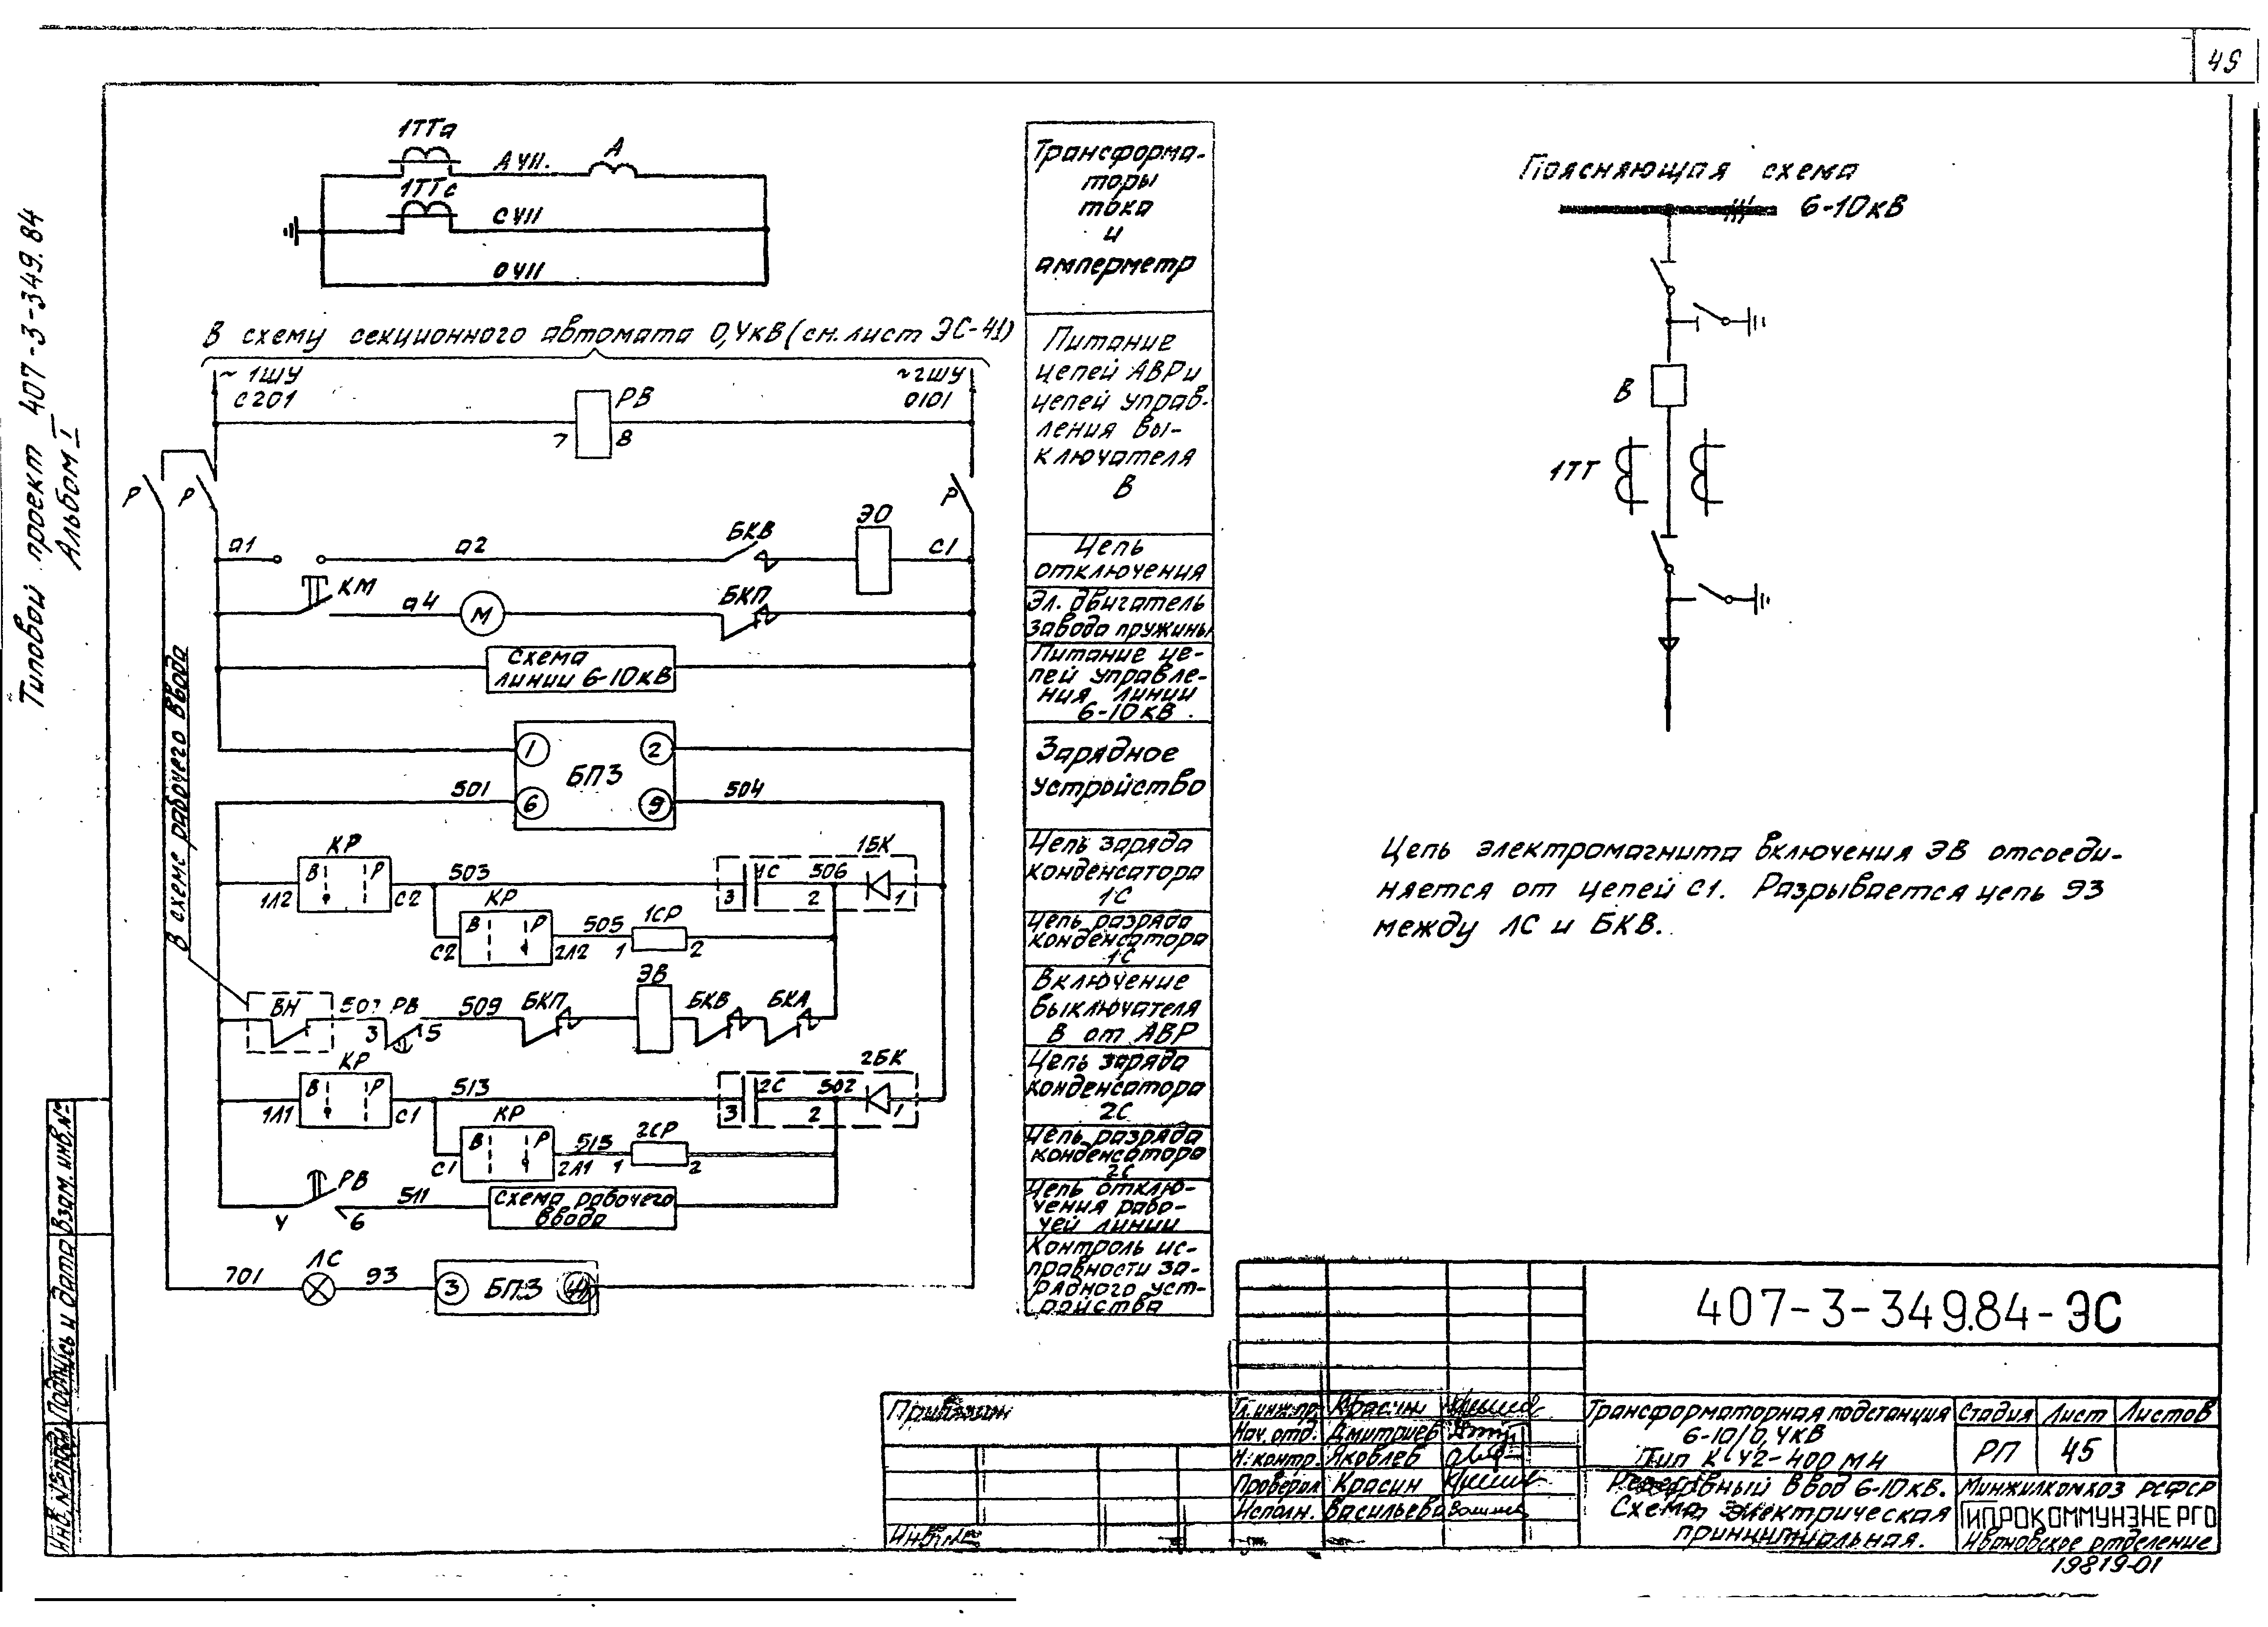 45
Типовой проект 407-3-349.84
Альбом I
1ТТа
А 411.
А
1ТТс
С 411
0 411
В схему секционного автомата 0,4кВ (см. лист ЭС-41)
~ 1ШУ
С 201
~2ШУ
0101
РВ
7
8
Р
Р
Р
а1
а2
БКВ
ЭО
С1
КМ
а4
М
БКП
схема
линии 6-10кВ
1
2
БПЗ
6
9
501
504
В схеме рабочего ввода
КР
В
Р
1Л2
С2
503
1БК
1С
506
3
2
1
КР
В
Р
С2
2Л2
505
1СР
1
2
ВН
РВ
3
5
509
БКП
ЭВ
БКВ
БКА
КР
В
Р
1Л1
С1
513
2БК
2С
502
3
2
1
КР
В
Р
С1
2Л1
513
2СР
1
2
РВ
4
6
511
схема рабочего
ввода
701
ЛС
93
3
БПЗ
Трансформа-
торы
тока
и
амперметр
Питание
цепей АВР и
цепей управ-
ления вы-
ключателя
В
Цепь
отключения
Эл. двигатель
завода пружины
Питание це-
пей управле-
ния линии
6-10кВ.
Зарядное
устройство
Цепь заряда
конденсатора
1С
Цепь разряда
конденсатора
1С
Включение
выключателя
В от АВР
Цепь заряда
конденсатора
2С
Цепь разряда
конденсатора
2С
Цепь отклю-
чения рабо-
чей линии
Контроль ис-
правности за-
рядного уст-
ройства
Поясняющая схема
6-10кВ
В
1ТТ
Цепь электромагнита включения ЭВ отсоеди-
няется от цепей С1. Разрывается цепь 93
между ЛС и БКВ.
407-3-349.84-ЭС
Привязан
Инв.№
Гл. инж. пр. Красин
Нач. отд. Дмитриев
Н. контр. Яковлев
Проверил Красин
Исполн. Васильева
Трансформаторная подстанция
6-10/0,4кВ
Тип К-42-400 М4
Резервный ввод 6-10кВ.
Схема электрическая
принципиальная.
Стадия Лист Листов
РП 45
Минжилкомхоз РСФСР
ГИПРОКОММУНЭНЕРГО
Ивановское отделение
19819-01
Инв. № подл. Подпись и дата Взам. инв. №